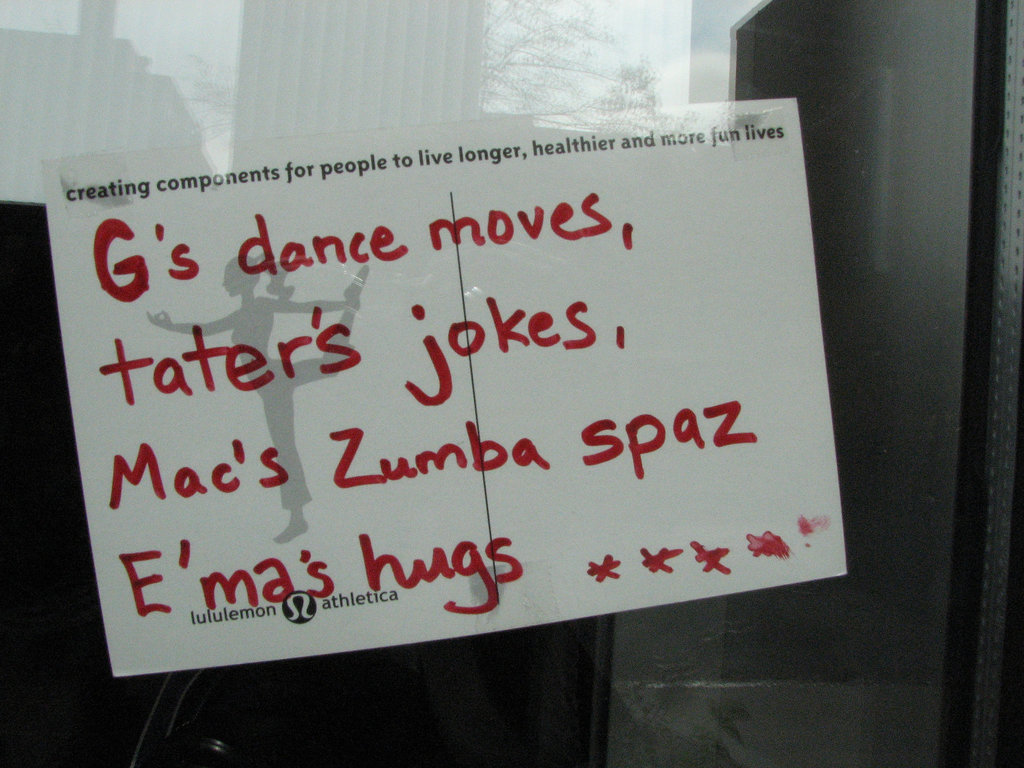 creating components for people to live longer, healthier and more fun lives
G's dance moves,
tater's jokes,
Mac's Zumba spaz
E'ma's hugs ****
lululemon athletica